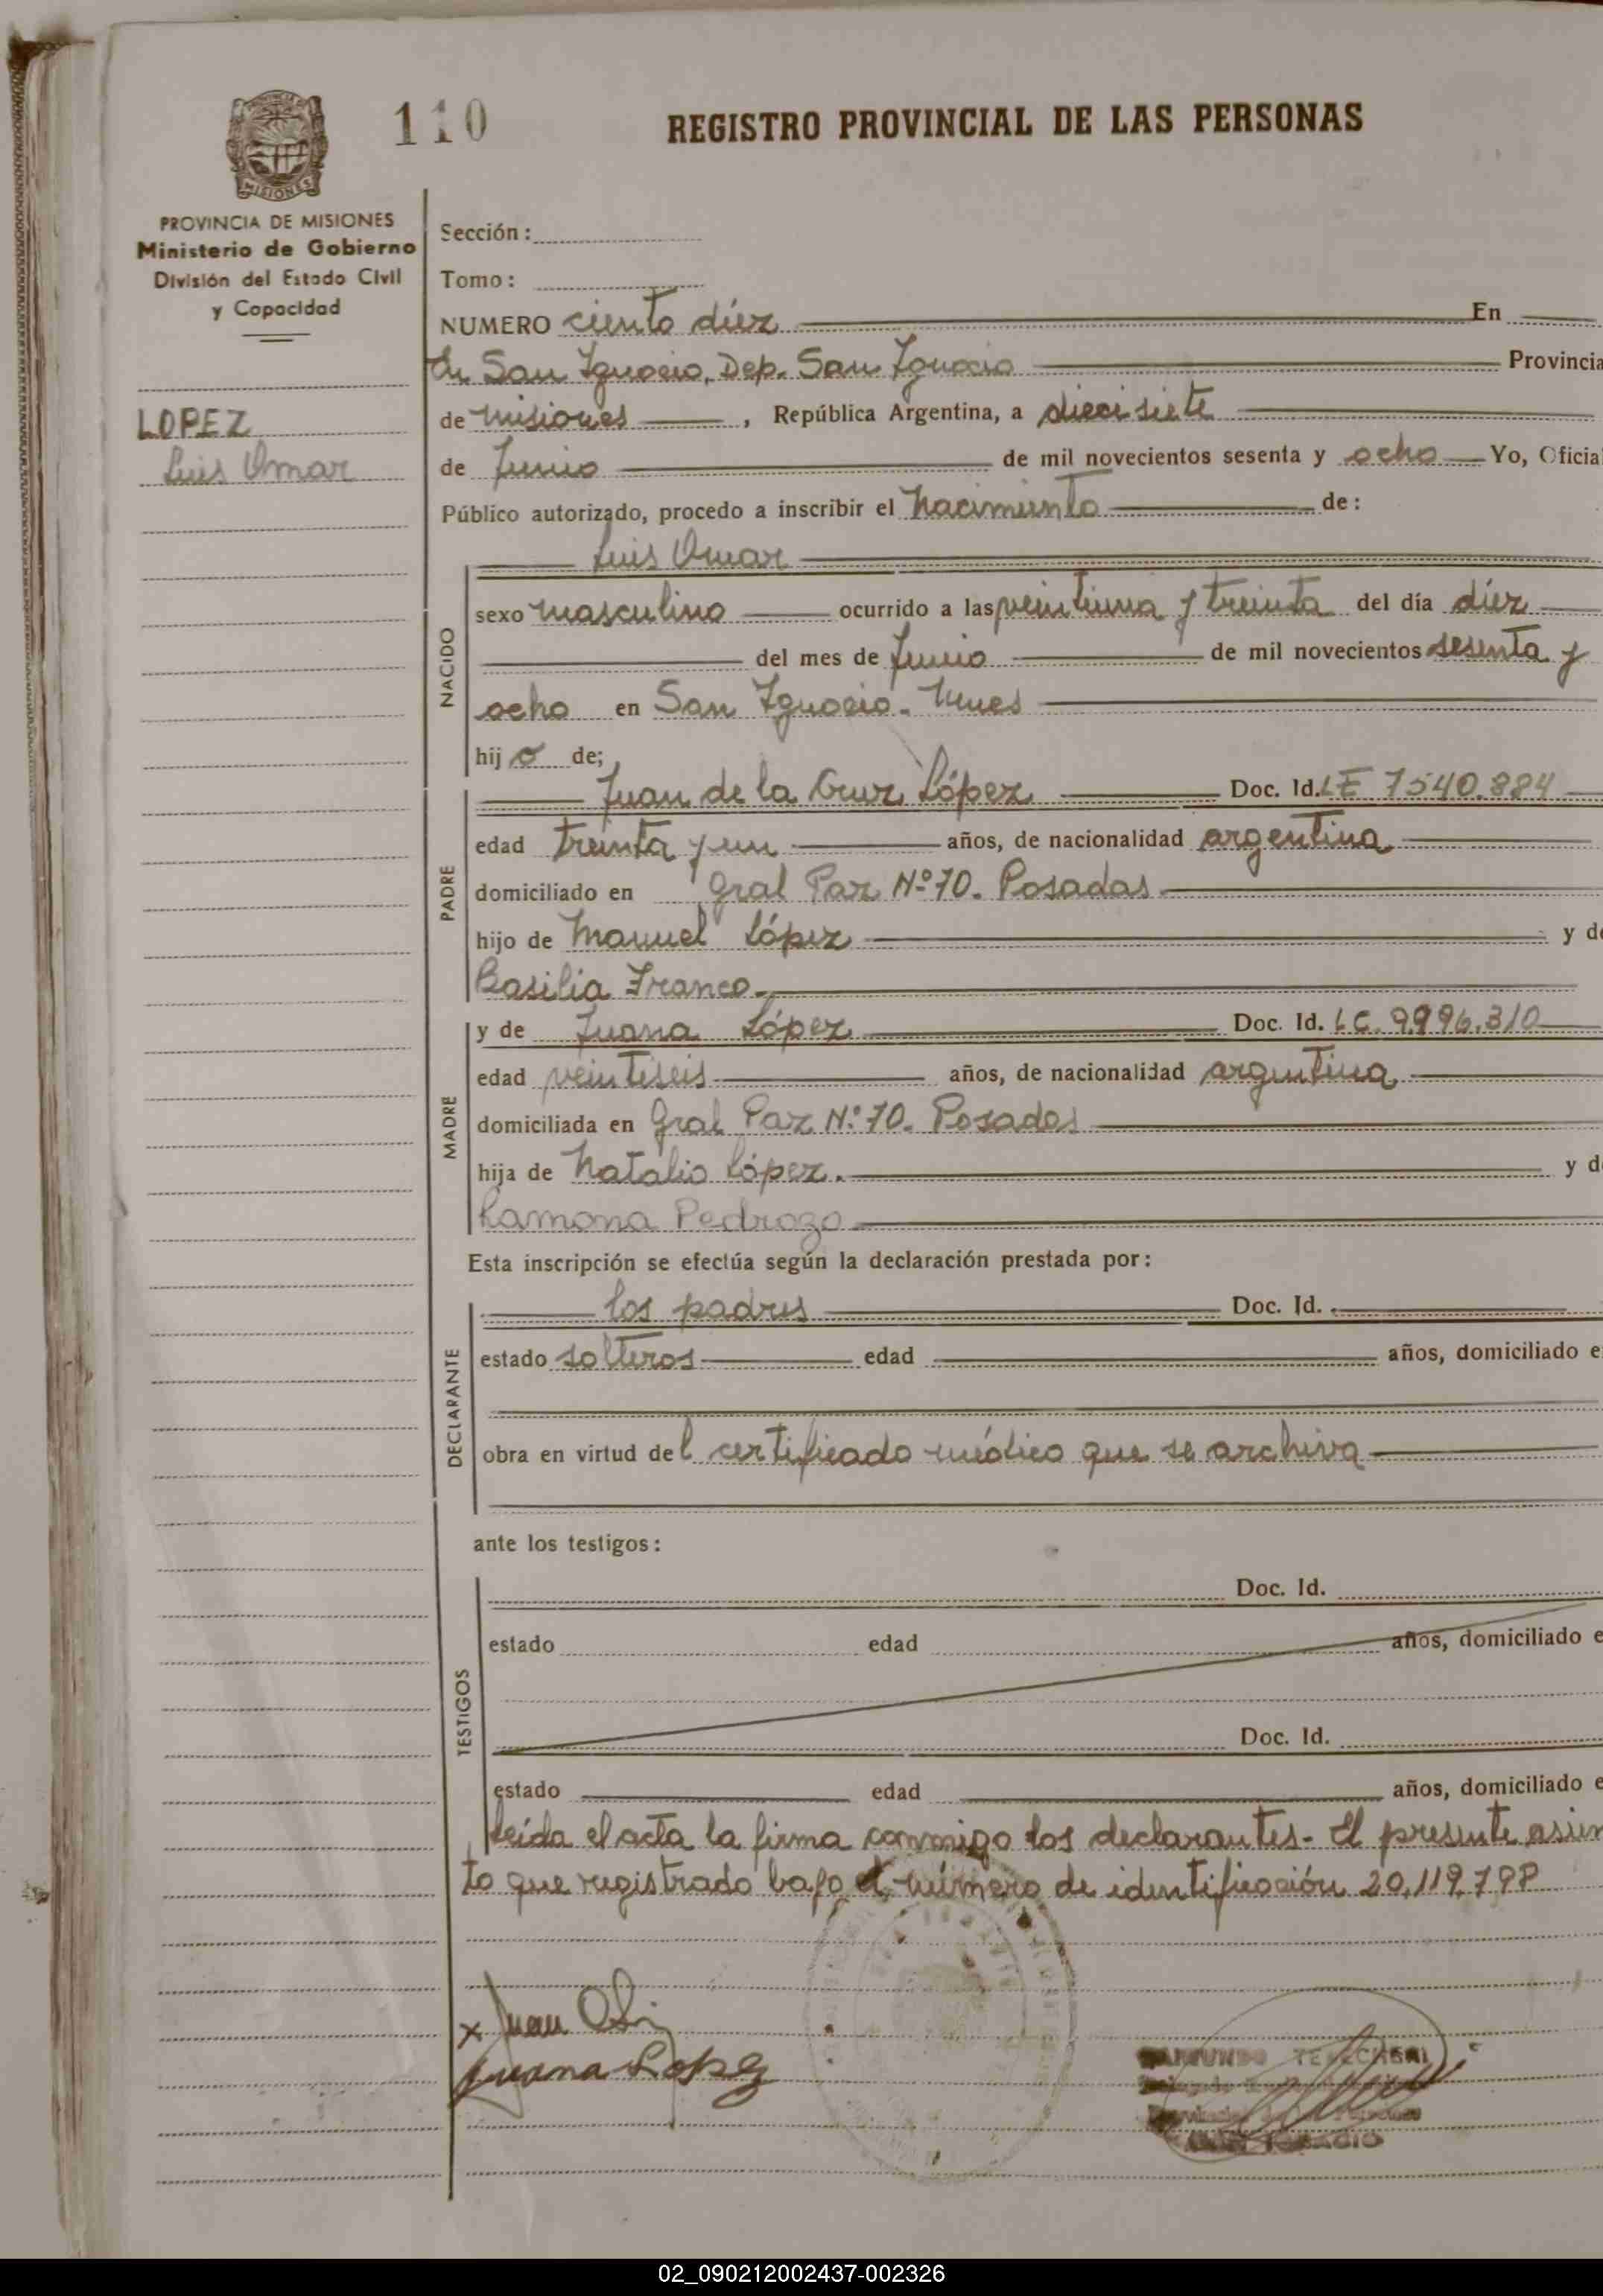 110
REGISTRO PROVINCIAL DE LAS PERSONAS
PROVINCIA DE MISIONES
Ministerio de Gobierno
División del Estado Civil
y Capacidad
LOPEZ
Luis Omar
Sección:
Tomo:
NUMERO ciento diez En
San Ignacio, Dep. San Ignacio Provincia
de Misiones, República Argentina, a diecisiete
de Junio de mil novecientos sesenta y ocho Yo, Oficial
Público autorizado, procedo a inscribir el Nacimiento de:
NACIDO
Luis Omar
sexo masculino ocurrido a las veintiuna y treinta del día diez
del mes de Junio de mil novecientos sesenta y
ocho en San Ignacio.
hijo de;
PADRE
Juan de la Cruz López Doc. Id. LE 7540.884
edad treinta y un años, de nacionalidad argentina
domiciliado en Gral Paz Nº 70. Posadas
hijo de Manuel López y de
Basilia Franco.
MADRE
y de Juana López Doc. Id. LC. 9.996.310
edad veintiseis años, de nacionalidad argentina
domiciliada en Gral Paz Nº 70. Posadas
hija de Natalio López. y de
Ramona Pedrozo
Esta inscripción se efectúa según la declaración prestada por:
DECLARANTE
los padres Doc. Id.
estado solteros edad años, domiciliado e
obra en virtud del certificado médico que se archiva
ante los testigos:
TESTIGOS
Doc. Id.
estado edad años, domiciliado e
Doc. Id.
estado edad años, domiciliado e
Leída el acta la firma conmigo los declarantes. El presente asien
to que registrado bajo el número de identificación 20.119.798
x Juan
Juana Lopez
SAN IGNACIO
02_090212002437-002326